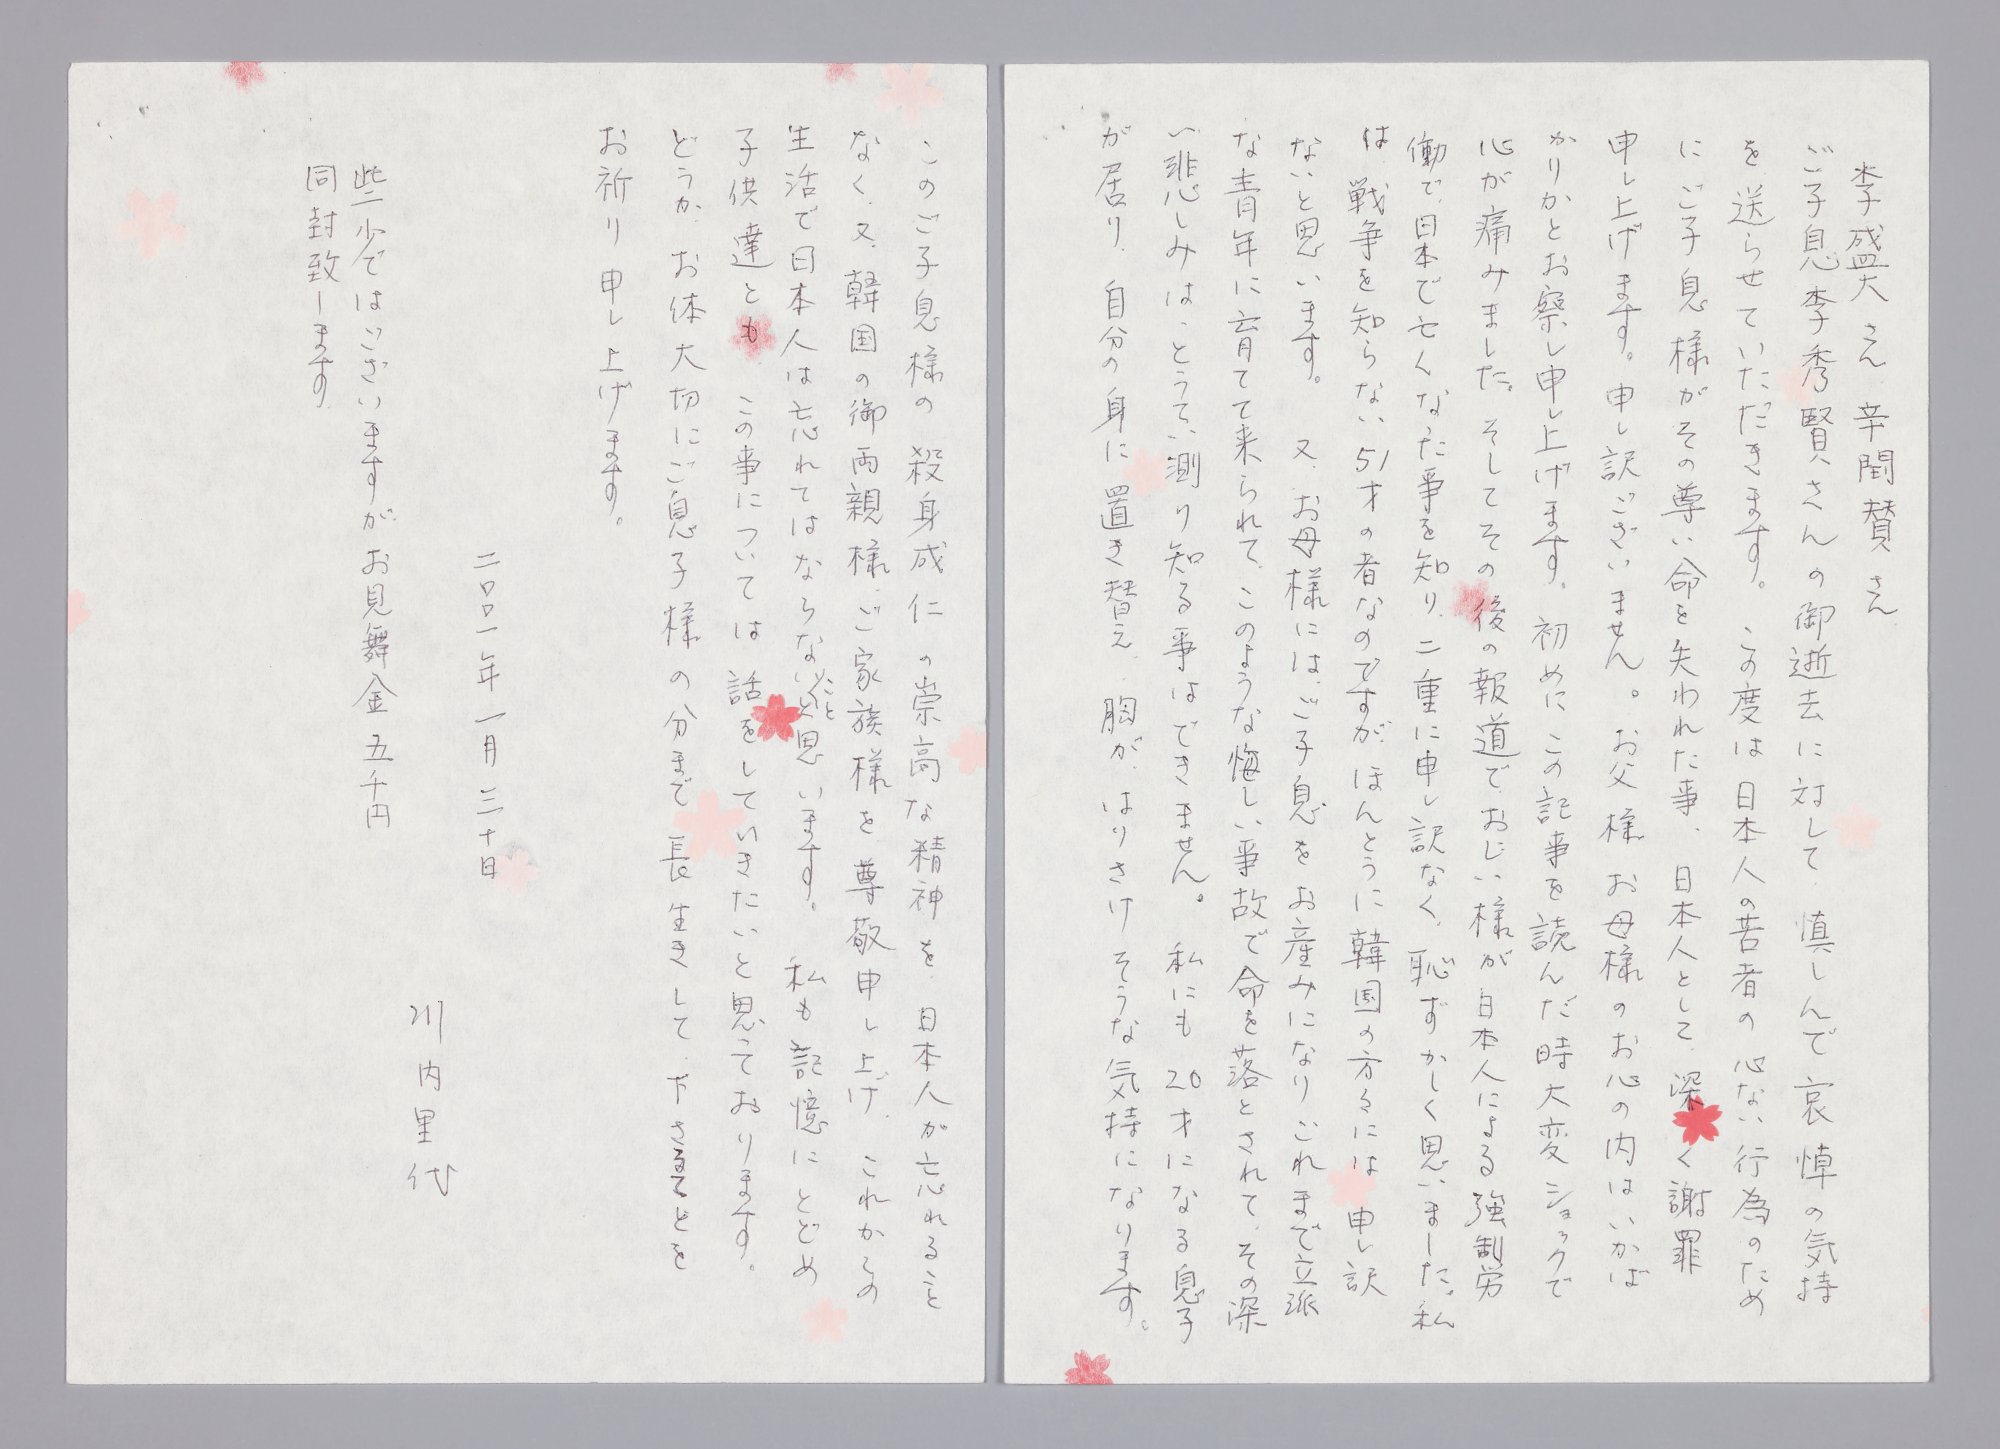 李盛大さん 辛閏賛さん
ご子息李秀賢さんの御逝去に対して、慎しんで哀悼の気持
を送らせていただきます。この度は日本人の若者の心ない行為のため
にご子息様がその尊い命を失われた事、日本人として、深く謝罪
申し上げます。申し訳ございません。お父様お母様のお心の内はいかば
かりかとお察し申し上げます。初めにこの記事を読んだ時大変ショックで
心が痛みました。そしてその後の報道で、おじい様が日本人による強制労
働で、日本で亡くなった事を知り、二重に申し訳なく、恥ずかしく思いました。私
は戦争を知らない51才の者なのですが、ほんとうに韓国の方々には申し訳
ないと思います。又、お母様には、ご子息をお産みになりこれまで立派
な青年に育てて来られて、このような悔しい事故で命を落とされて、その深
い悲しみは、とうてい測り知る事はできません。私にも20才になる息子
が居り、自分の身に置き替え、胸が、はりさけそうな気持になります。
このご子息様の殺身成仁の崇高な精神を、日本人が忘れること
なく、又、韓国の御両親様、ご家族様を尊敬申し上げ、これからの
生活で日本人は忘れてはならないことと思います。私も記憶にとどめ
子供達とも、この事については話をしていきたいと思っております。
どうか、お体大切にご息子様の分まで長生きして、下さることを
お祈り申し上げます。
二〇〇一年一月三十日
川内里代
些少ではございますが、お見舞金五千円
同封致します